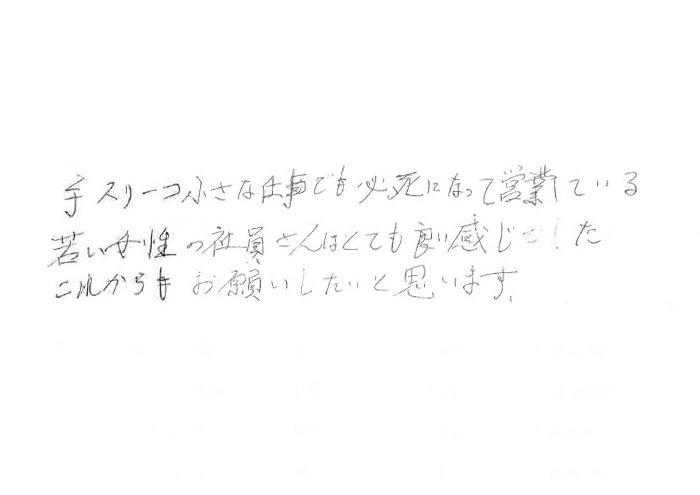 手スリ一コ小さな仕事でも必死になって営業ている
若い女性の社員さんはとても良い感じでした
これからも お願いしたいと思います。